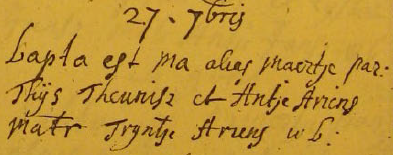 27. 7bris
bapta est ma alias maertje par:
Thijs Theunisz et Antje Ariens
matr Tryntje Ariens w b: